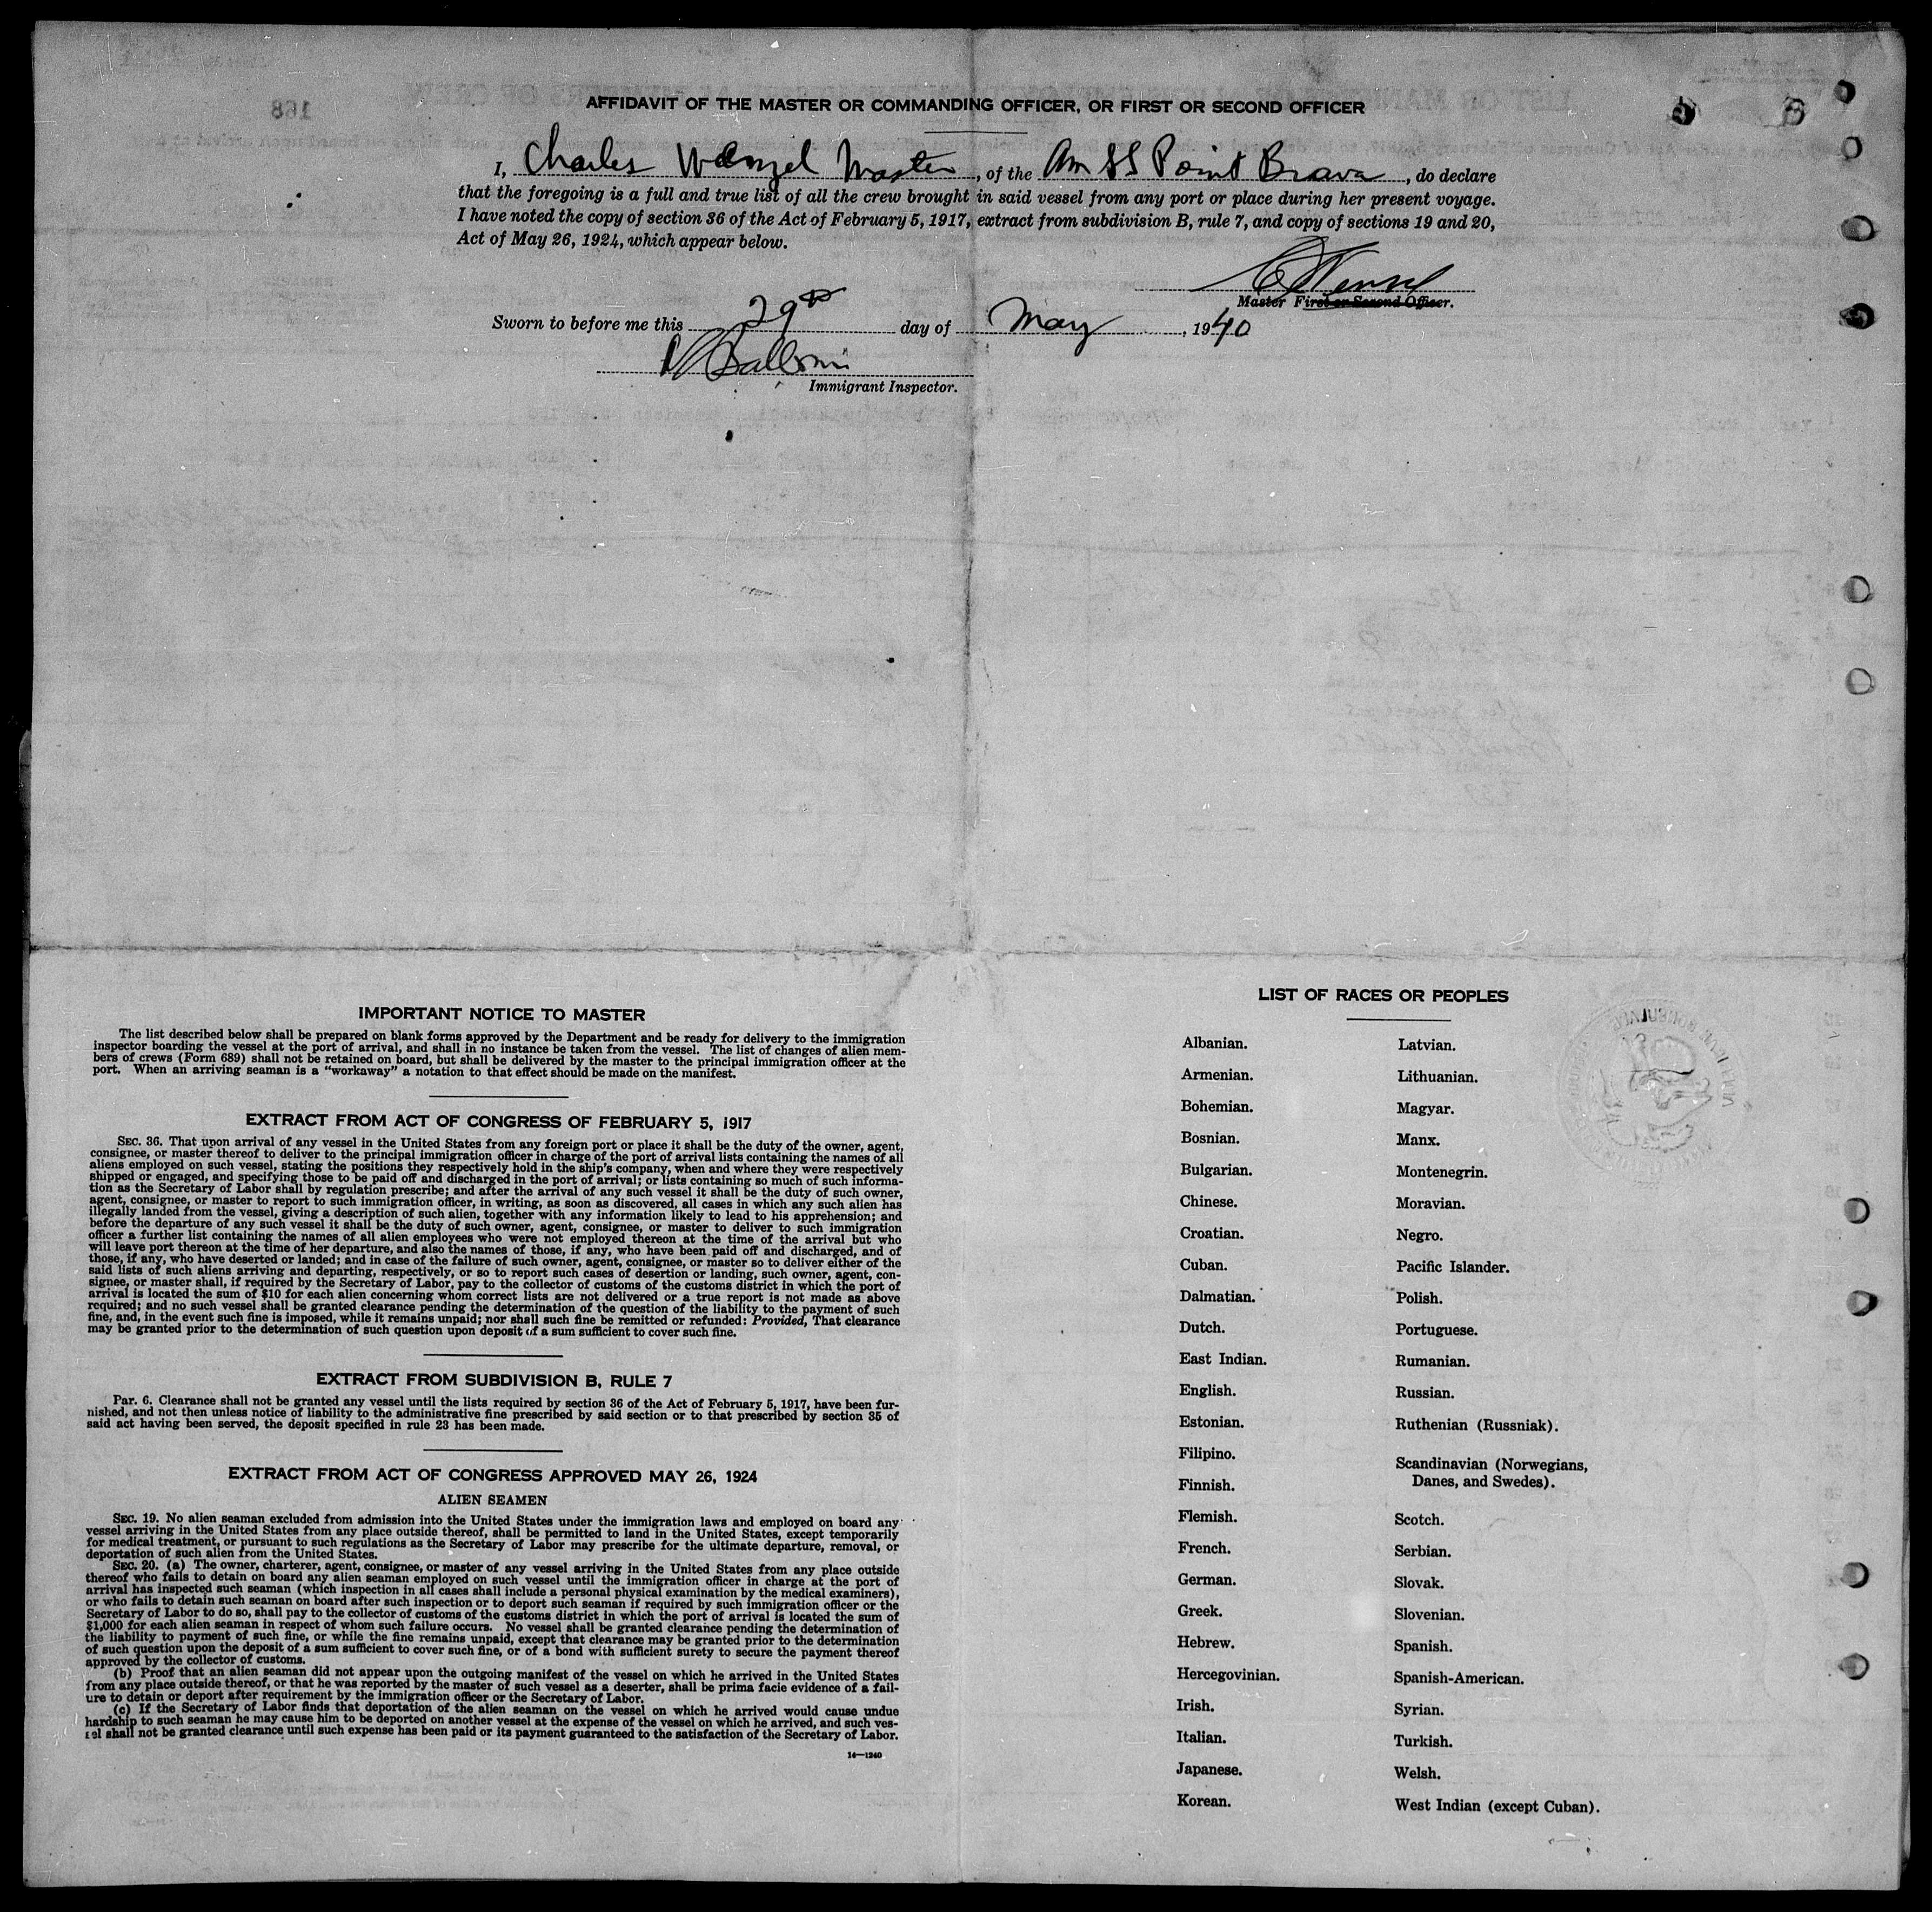 AFFIDAVIT OF THE MASTER OR COMMANDING OFFICER, OR FIRST OR SECOND OFFICER
I, Charles Wenzel Master, of the Am SS Point Brava, do declare
that the foregoing is a full and true list of all the crew brought in said vessel from any port or place during her present voyage.
I have noted the copy of section 36 of the Act of February 5, 1917, extract from subdivision B, rule 7, and copy of sections 19 and 20,
Act of May 26, 1924, which appear below.
C Wenzel
Master First or Second Officer.
Sworn to before me this 29th day of May, 1940
Immigrant Inspector.
IMPORTANT NOTICE TO MASTER
The list described below shall be prepared on blank forms approved by the Department and be ready for delivery to the immigration
inspector boarding the vessel at the port of arrival, and shall in no instance be taken from the vessel. The list of changes of alien mem-
bers of crews (Form 689) shall not be retained on board, but shall be delivered by the master to the principal immigration officer at the
port. When an arriving seaman is a "workaway" a notation to that effect should be made on the manifest.
EXTRACT FROM ACT OF CONGRESS OF FEBRUARY 5, 1917
SEC. 36. That upon arrival of any vessel in the United States from any foreign port or place it shall be the duty of the owner, agent,
consignee, or master thereof to deliver to the principal immigration officer in charge of the port of arrival lists containing the names of all
aliens employed on such vessel, stating the positions they respectively hold in the ship's company, when and where they were respectively
shipped or engaged, and specifying those to be paid off and discharged in the port of arrival; or lists containing so much of such informa-
tion as the Secretary of Labor shall by regulation prescribe; and after the arrival of any such vessel it shall be the duty of such owner,
agent, consignee, or master to report to such immigration officer, in writing, as soon as discovered, all cases in which any such alien has
illegally landed from the vessel, giving a description of such alien, together with any information likely to lead to his apprehension; and
before the departure of any such vessel it shall be the duty of such owner, agent, consignee, or master to deliver to such immigration
officer a further list containing the names of all alien employees who were not employed thereon at the time of the arrival but who
will leave port thereon at the time of her departure, and also the names of those, if any, who have been paid off and discharged, and of
those, if any, who have deserted or landed; and in case of the failure of such owner, agent, consignee, or master so to deliver either of the
said lists of such aliens arriving and departing, respectively, or so to report such cases of desertion or landing, such owner, agent, con-
signee, or master shall, if required by the Secretary of Labor, pay to the collector of customs of the customs district in which the port of
arrival is located the sum of $10 for each alien concerning whom correct lists are not delivered or a true report is not made as above
required; and no such vessel shall be granted clearance pending the determination of the question of the liability to the payment of such
fine, and, in the event such fine is imposed, while it remains unpaid; nor shall such fine be remitted or refunded: Provided, That clearance
may be granted prior to the determination of such question upon deposit of a sum sufficient to cover such fine.
EXTRACT FROM SUBDIVISION B, RULE 7
Par. 6. Clearance shall not be granted any vessel until the lists required by section 36 of the Act of February 5, 1917, have been fur-
nished, and not then unless notice of liability to the administrative fine prescribed by said section or to that prescribed by section 35 of
said act having been served, the deposit specified in rule 23 has been made.
EXTRACT FROM ACT OF CONGRESS APPROVED MAY 26, 1924
ALIEN SEAMEN
SEC. 19. No alien seaman excluded from admission into the United States under the immigration laws and employed on board any
vessel arriving in the United States from any place outside thereof, shall be permitted to land in the United States, except temporarily
for medical treatment, or pursuant to such regulations as the Secretary of Labor may prescribe for the ultimate departure, removal, or
deportation of such alien from the United States.
SEC. 20. (a) The owner, charterer, agent, consignee, or master of any vessel arriving in the United States from any place outside
thereof who fails to detain on board any alien seaman employed on such vessel until the immigration officer in charge at the port of
arrival has inspected such seaman (which inspection in all cases shall include a personal physical examination by the medical examiners),
or who fails to detain such seaman on board after such inspection or to deport such seaman if required by such immigration officer or the
Secretary of Labor to do so, shall pay to the collector of customs of the customs district in which the port of arrival is located the sum of
$1,000 for each alien seaman in respect of whom such failure occurs. No vessel shall be granted clearance pending the determination of
the liability to payment of such fine, or while the fine remains unpaid, except that clearance may be granted prior to the determination
of such question upon the deposit of a sum sufficient to cover such fine, or of a bond with sufficient surety to secure the payment thereof
approved by the collector of customs.
(b) Proof that an alien seaman did not appear upon the outgoing manifest of the vessel on which he arrived in the United States
from any place outside thereof, or that he was reported by the master of such vessel as a deserter, shall be prima facie evidence of a fail-
ure to detain or deport after requirement by the immigration officer or the Secretary of Labor.
(c) If the Secretary of Labor finds that deportation of the alien seaman on the vessel on which he arrived would cause undue
hardship to such seaman he may cause him to be deported on another vessel at the expense of the vessel on which he arrived, and such ves-
sel shall not be granted clearance until such expense has been paid or its payment guaranteed to the satisfaction of the Secretary of Labor.
14—1240
LIST OF RACES OR PEOPLES
Albanian.
Armenian.
Bohemian.
Bosnian.
Bulgarian.
Chinese.
Croatian.
Cuban.
Dalmatian.
Dutch.
East Indian.
English.
Estonian.
Filipino.
Finnish.
Flemish.
French.
German.
Greek.
Hebrew.
Hercegovinian.
Irish.
Italian.
Japanese.
Korean.
Latvian.
Lithuanian.
Magyar.
Manx.
Montenegrin.
Moravian.
Negro.
Pacific Islander.
Polish.
Portuguese.
Rumanian.
Russian.
Ruthenian (Russniak).
Scandinavian (Norwegians,
Danes, and Swedes).
Scotch.
Serbian.
Slovak.
Slovenian.
Spanish.
Spanish-American.
Syrian.
Turkish.
Welsh.
West Indian (except Cuban).